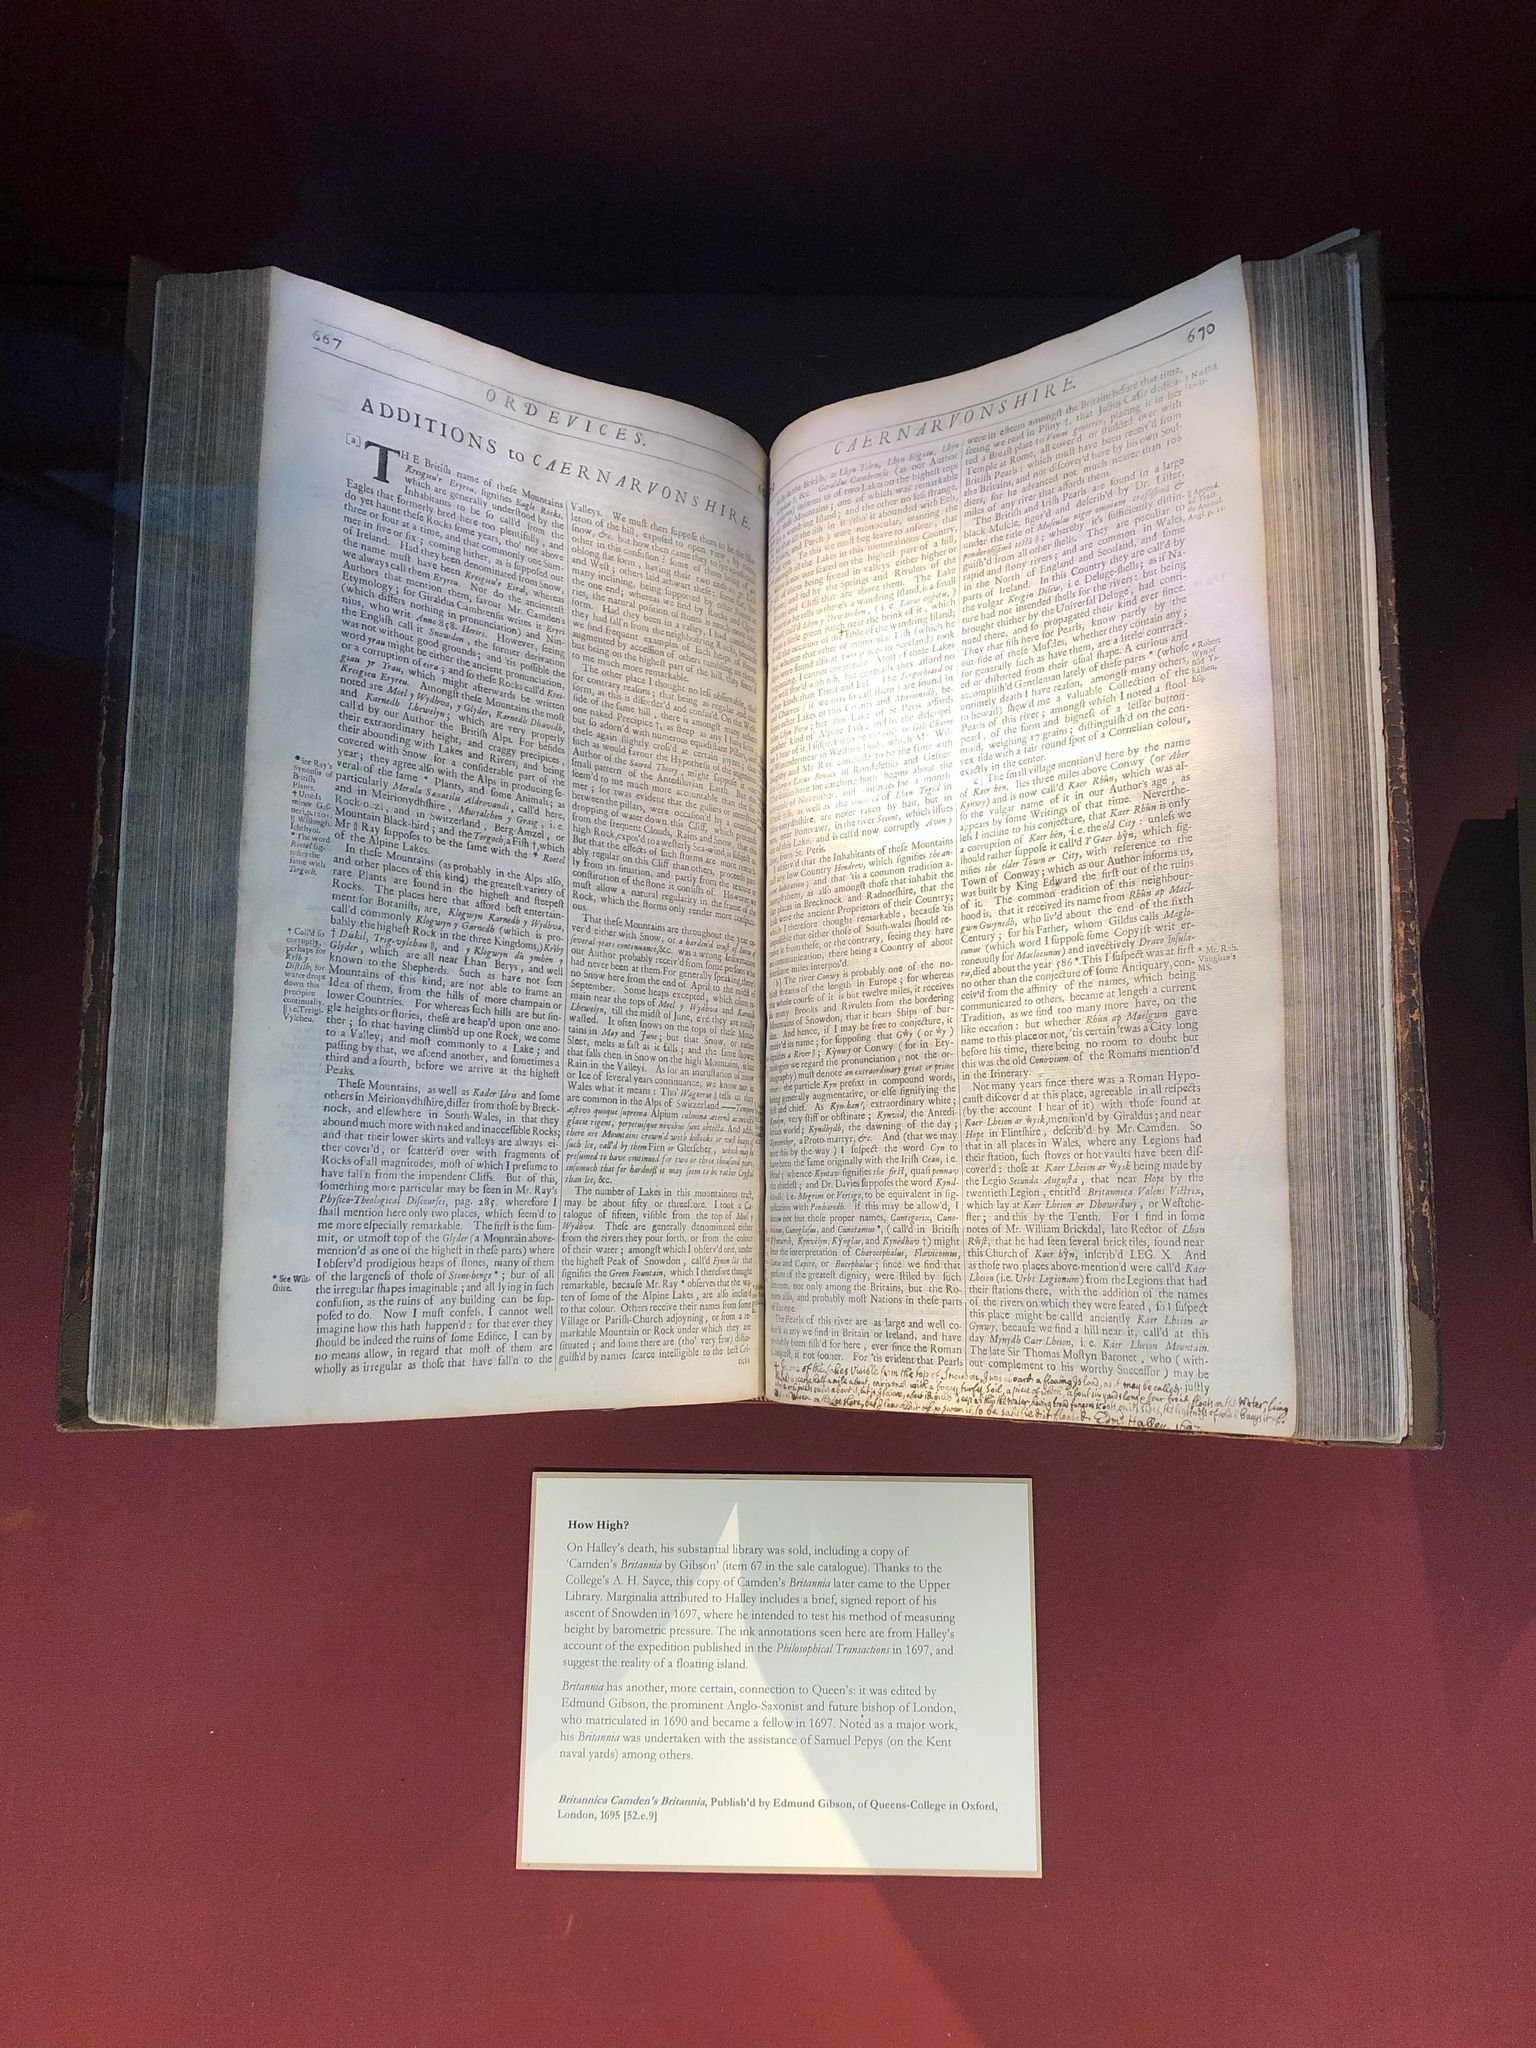 667
ORDEVICES.
ADDITIONS to CAERNARVONSHIRE.
[a]
THE Britiſh name of theſe Mountains
Kreigieu'r Eryreu, ſignifies Eagle Rocks,
which are generally underſtood by the
Inhabitants to be ſo call'd from the
Eagles that formerly bred here too plentifully, and
do yet haunt theſe Rocks ſome years, tho' not above
three or four at a time, and that commonly one Sum-
mer in five or ſix; coming hither, as is ſuppoſed out
of Ireland. Had they been denominated from Snow,
the name muſt have been Kreigieu'r Eira, whereas
we always call them Eryreu. Nor do the ancienteſt
Authors that mention them, favour Mr. Camden's
Etymology; for Giraldus Cambrenſis writes it Eryri
(which differs nothing in pronunciation) and Nin-
nius, who writ Anno 858. Hereri. However, ſeeing
the Engliſh call it Snowdon, the former derivation
was not without good grounds; and 'tis poſſible the
word yrau might be either the ancient pronunciation,
or a corruption of eira; and ſo theſe Rocks call'd Krei-
giau yr Yrau, which might afterwards be written
Kreigieu Eryreu. Amongſt theſe Mountains the moſt
noted are Moel y Wydhva, y Glyder, Karnedh Dhavydh,
and Karnedh Lhewelyn; which are very properly
call'd by our Author the Britiſh Alps. For beſides
their extraordinary height, and craggy precipices,
their abounding with Lakes and Rivers, and being
covered with Snow for a conſiderable part of the
year; they agree alſo with the Alps in producing ſe-
veral of the ſame * Plants, and ſome Animals; as
particularly Merula Saxatilis Aldrovandi, call'd here,
and in Meirionydhſhire, Mwyalchen y Graig, i.e.
Rock-ouzl, and in Switzerland, Berg-Amzel, or
Mountain Black-bird; and the Torgoch, a Fiſh †, which
Mr || Ray ſuppoſes to be the ſame with the * Roetel
of the Alpine Lakes.
* See Ray's
Synopſis of
Britiſh
Plants.
† Umbla
minor Geſ-
ner. p. 1201.
|| Willough.
Ichthyol.
* The word
Roetel ſig-
nifies the
ſame with
Torgoch.
In theſe Mountains (as probably in the Alps alſo,
and other places of this kind) the greateſt variety of
rare Plants are found in the higheſt and ſteepeſt
Rocks. The places here that afford beſt entertain-
ment for Botaniſts, are, Klogwyn Karnedh y Wydhva,
call'd commonly Klogwyn y Garnedh (which is pro-
bably the higheſt Rock in the three Kingdoms,) Krib y
† Diskil, Trig-vylchau ||, and y Klogwyn dû ymhen y
Glyder, which are all near Lhan Berys, and well
known to the Shepherds. Such as have not ſeen
Mountains of this kind, are not able to frame an
Idea of them, from the hills of more champain or
lower Countries. For whereas ſuch hills are but ſin-
gle heights or ſtories, theſe are heap'd upon one ano-
ther; ſo that having climb'd up one Rock, we come
to a Valley, and moſt commonly to a Lake; and
paſſing by that, we aſcend another, and ſometimes a
third and a fourth, before we arrive at the higheſt
Peaks.
† Call'd ſo
corruptly,
perhaps for
Krib y
Diſtilh; for
water drops
down this
precipice
continually.
|| i.e. Treigl-
Vylcheu.
Theſe Mountains, as well as Kader Idris and ſome
others in Meirionydhſhire, differ from thoſe by Breck-
nock, and elſewhere in South-Wales, in that they
abound much more with naked and inacceſſible Rocks;
and that their lower skirts and valleys are always ei-
ther cover'd, or ſcatter'd over with fragments of
Rocks of all magnitudes, moſt of which I preſume to
have fall'n from the impendent Cliffs. But of this,
ſomething more particular may be ſeen in Mr. Ray's
Phyſico-Theological Diſcourſes, pag. 285. wherefore I
ſhall mention here only two places, which ſeem'd to
me more eſpecially remarkable. The firſt is the ſum-
mit, or utmoſt top of the Glyder (a Mountain above-
mention'd as one of the higheſt in theſe parts) where
I obſerv'd prodigious heaps of ſtones, many of them
of the largeneſs of thoſe of Stone-henge *; but of all
the irregular ſhapes imaginable; and all lying in ſuch
confuſion, as the ruins of any building can be ſup-
poſed to do. Now I muſt confeſs, I cannot well
imagine how this hath happen'd: for that ever they
ſhould be indeed the ruins of ſome Edifice, I can by
no means allow, in regard that moſt of them are
wholly as irregular as thoſe that have fall'n to the
* See Wilt-
ſhire.
Valleys. We muſt then ſuppoſe them to be the
leton of the hill, expoſed to open view, by
ſnow, &c. but how then came they to lie
other in this confuſion? ſome of them being
oblong flat form, having their two ends
and Weſt; others laid athwart theſe: ſome
many inclining, being ſupported by other
the one end; whereas we find by Rocks and
ries, the natural poſition of ſtones is much
form. Had they been in a valley, I had
they had fall'n from the neighbouring Rocks,
we find frequent examples of ſuch heaps of
augmented by acceſſion of others tumbling on
but being on the higheſt part of the hill, they ſeem'd
to me much more remarkable.
The other place I thought no leſs obſervable, tho'
for contrary reaſons; that being as regular and
form, as this is diſorder'd and confus'd. On the
ſide of the ſame hill, there is amongſt many
one naked Precipice †, as ſteep as any I have
but ſo adorn'd with numerous equidiſtant Pillars,
theſe again ſlightly croſs'd at certain joynts,
ſuch as would favour the Hypotheſis of the ingenious
Author of the Sacred Theory, might ſuppoſe it one
ſmall pattern of the Antediluvian Earth. But this
ſeem'd to me much more accountable than the
mer; for 'twas evident that the gullets or interſtices
between the pillars, were occaſion'd by a continual
dropping of water down this Cliff, which proceeds
from the frequent Clouds, Rains and Snow, that this
high Rock, expos'd to a weſterly Sea-wind, is ſubject to.
But that the effects of ſuch ſtorms are more remark-
ably regular on this Cliff than others, proceeds part-
ly from its ſituation, and partly from the texture or
conſtitution of the ſtone it conſiſts of. However, we
muſt allow a natural regularity in the frame of the
Rock, which the ſtorms only render more conſpicu-
ous.
That theſe Mountains are throughout the year co-
ver'd either with Snow, or a harden'd cruſt of Snow of
ſeveral years continuance, &c. was a wrong Information
our Author probably receiv'd from ſome perſons who
had never been at them. For generally ſpeaking, there's
no Snow here from the end of April to the midſt of
September. Some heaps excepted, which often re-
main near the tops of Moel y Wydhva and Karnedh
Lhewelyn, till the midſt of June, ere they are totally
waſted. It often ſnows on the tops of theſe Moun-
tains in May and June; but that Snow, or rather
Sleet, melts as faſt as it falls; and the ſame ſhower
that falls then in Snow on the high Mountains, is but
Rain in the Valleys. As for an incruſtation of Snow
or Ice of ſeveral years continuance, we know not in
Wales what it means: Tho' Wagnerus || tells us they
are common in the Alps of Switzerland.—Tempore
æſtivo quoque ſuprema Alpium culmina æternâ ac invictâ
glacie rigent, perpetuiſque nivibus ſunt obtecta. And adds,
there are Mountains crown'd with hillocks or vaſt heaps of
ſuch Ice, call'd by them Firn or Gletſcher, which may be
preſumed to have continued for two or three thouſand years,
inſomuch that for hardneſs it may ſeem to be rather Cryſtal
than Ice, &c.
The number of Lakes in this mountainous tract,
may be about fifty or threeſcore. I took a Ca-
talogue of fifteen, viſible from the top of Moel y
Wydhva. Theſe are generally denominated either
from the rivers they pour forth, or from the colour
of their water; amongſt which I obſerv'd one, under
the higheſt Peak of Snowdon, call'd Fynon lâs that
ſignifies the Green Fountain, which I therefore thought
remarkable, becauſe Mr. Ray * obſerves that the wa-
ters of ſome of the Alpine Lakes, are alſo inclin'd
to that colour. Others receive their names from ſome
Village or Pariſh-Church adjoyning, or from a re-
markable Mountain or Rock under which they are
ſituated; and ſome there are (tho' very few) diſtin-
guiſh'd by names ſcarce intelligible to the beſt Cri-
ticks
CAERNARVONSHIRE.
670
in the Britiſh; as Lhyn Teirn, Lhyn Eigiau, Lhyn
&c. Giraldus Cambrenſis (as our Author
informs us of two Lakes on the higheſt tops
Mountains; one of which was remarkable
wandring Iſland; and the other no leſs ſtrange,
all the fiſh in it (tho' it abounded with Eels,
and Perch) were monocular, wanting the
To this we muſt beg leave to anſwer, that
all the Lakes in this mountainous Country,
one ſeated on the higheſt part of a hill,
them being ſpread in valleys either higher or
and fed by the Springs and Rivulets of the
and Cliffs that are above them. The Lake
he tells us there's a wandring Iſland, is a ſmall
call'd Lhyn y Dywarchen, (i.e. Lacus ceſpitis,)
green patch near the brink of it, which
occaſion of the fable of the wandring Iſland;
whence that other of monocular fiſh (which he
were found alſo at two places in Scotland) took
I cannot conjecture. Moſt of theſe Lakes
well ſtor'd with fiſh, but generally they afford no
kinds than Trout and Eel. The Torgochiaid or
Charres (if we may ſo call them) are found in
other Lakes of this County and Meirionydh, be-
Lhyn Peris; but this Lake of St Peris affords
kind of Alpine Fiſh; and by the deſcripti-
hear of it, I ſuſpect it to be the Gelt Charre
Winandermear in Weſtmorland, which Mr. Wil-
lughby and Mr Ray conclude to be the ſame with
Carpio Lacus Benaci of Rondeletius and Geſner
time here for catching both begins about the
of November, and continues for a month
fiſh, as well as the Guiniad of Lhyn Tegid in
Meirionydhſhire, are never taken by bait, but in
near Pontvawr, in the river Seiont, which iſſues
of this Lake, and is call'd now corruptly Avon y
from St. Peris.
obſerv'd that the Inhabitants of theſe Mountains
any low Country Hendrev, which ſignifies the an-
cient habitation; and that 'tis a common tradition a-
mongſt them, as alſo amongſt thoſe that inhabit the
like places in Brecknock and Radnorſhire, that the
Iriſh were the ancient Proprietors of their Country;
which I therefore thought remarkable, becauſe 'tis
impoſſible that either thoſe of South-wales ſhould re-
ceive it from theſe, or the contrary, ſeeing they have
no communication, there being a Country of about
fourſcore miles interpos'd.
b) The river Conwy is probably one of the no-
bleſt ſtreams of the length in Europe; for whereas
the whole courſe of it is but twelve miles, it receives
ſo many Brooks and Rivulets from the bordering
Mountains of Snowdon, that it bears Ships of bur-
then. And hence, if I may be free to conjecture, it
receiv'd its name; for ſuppoſing that Gŵy (or ŵy)
ſignifies a River ||; Kynwy or Conwy (for in Ety-
mologies we regard the pronunciation, not the or-
thography) muſt denote an extraordinary great or prime
river: the particle Kyn prefixt in compound words,
being generally augmentative, or elſe ſignifying the
firſt and chief. As Kyn-kan, extraordinary white;
Kyndyn, very ſtiff or obſtinate; Kynvid, the Antedi-
luvian world; Kyndhydh, the dawning of the day;
Kynverthyr, a Proto-martyr, &c. And (that we may
note this by the way) I ſuſpect the word Cyn to
have been the ſame originally with the Iriſh Cean, i.e.
Head (whence Kyntav ſignifies the firſt, quaſi pennav
the chiefeſt; and Dr. Davies ſuppoſes the word Kynd-
haredh, i.e. Megrim or Vertigo, to be equivalent in ſig-
nification with Penbaredh. If this may be allow'd, I
know not but theſe proper names, Cuntegorix, Cuno-
belinus, Cuneglaſus, and Cunotamus *, (call'd in Britiſh
Kyndeyrn, Kynvelyn, Kynglas, and Kynedhav †) might
bear the interpretation of Charocephalus, Flavicomus,
Canus and Capito, or Bucephalus; ſince we find that
perſons of the greateſt dignity, were ſtiled by ſuch
ſirnames, not only among the Britains, but the Ro-
mans alſo, and probably moſt Nations in theſe parts
of Europe.
The Pearls of this river are as large and well co-
lour'd as any we find in Britain or Ireland, and have
probably been fiſh'd for here, ever ſince the Roman
Conqueſt, if not ſooner. For 'tis evident that Pearls
were in eſteem amongſt the Britains before that time,
ſeeing we read in Pliny †, that Julius Cæſar dedica-
ted a Breaſt-plate to Venus genetrix, placing it in her
Temple at Rome, all cover'd or ſtudded over with
Britiſh Pearls: which muſt have been receiv'd from
the Britains, and not diſcover'd here by his own Soul-
diers, for he advanced not much nearer than 100
miles of any river that affords them.
The Britiſh and Iriſh Pearls are found in a large
black Muſcle, figur'd and deſcrib'd by Dr. Liſter,
under the title of Muſculus niger omnium craſſiſſimâ &
ponderoſiſſimâ teſtâ ||; whereby it's ſufficiently diſtin-
guiſh'd from all other ſhells. They are peculiar to
rapid and ſtony rivers; and are common in Wales,
in the North of England and Scotland, and ſome
parts of Ireland. In this Country they are call'd by
the vulgar Kregin Diliw, i.e. Deluge-ſhells; as if Na-
ture had not intended ſhells for the rivers: but being
brought thither by the Univerſal Deluge, had conti-
nued there, and ſo propagated their kind ever ſince.
They that fiſh here for Pearls, know partly by the
out-ſide of theſe Muſcles, whether they contain any;
for generally ſuch as have them, are a little contract-
ed or diſtorted from their uſual ſhape. A curious and
accompliſh'd Gentleman lately of theſe parts * (whoſe
untimely death I have reaſon, amongſt many others,
to bewail) ſhew'd me a valuable Collection of the
Pearls of this river; amongſt which I noted a ſtool
pearl, of the form and bigneſs of a leſſer button-
mold, weighing 17 grains; diſtinguiſh'd on the con-
vex ſide with a fair round ſpot of a Cornelian colour,
exactly in the center.
|| Append.
ad Tract.
de Animal.
Angl. p. 11.
* Robert
Wyn of
Bod Yſ-
kalhen,
Eſq;
c) The ſmall village mention'd here by the name
of Kaer hên, lies three miles above Conwy (or Aber
Kynwy) and is now call'd Kaer Rhûn, which was al-
ſo the vulgar name of it in our Author's age, as
appears by ſome Writings of that time. Neverthe-
leſs I incline to his conjecture, that Kaer Rhûn is only
a corruption of Kaer hên, i.e. the old City: unleſs we
ſhould rather ſuppoſe it call'd Y Gaer hŷn, which ſig-
nifies the elder Town or City, with reference to the
Town of Conway; which as our Author informs us,
was built by King Edward the firſt out of the ruins
of it. The common tradition of this neighbour-
hood is, that it received its name from Rhûn ap Mael-
gwn Gwynedh, who liv'd about the end of the ſixth
Century; for his Father, whom Gildas calls Maglo-
cunus (which word I ſuppoſe ſome Copyiſt writ er-
roneouſly for Maelocunus) and invectively Draco Inſula-
ris, died about the year 586 *. This I ſuſpect was at firſt
no other than the conjecture of ſome Antiquary, con-
ceiv'd from the affinity of the names, which being
communicated to others, became at length a current
Tradition, as we find too many more have, on the
like occaſion: but whether Rhûn ap Maelgwn gave
name to this place or not, 'tis certain 'twas a City long
before his time, there being no room to doubt but
this was the old Conovium of the Romans mention'd
in the Itinerary.
* Mr. Rob.
Vaughan's
MS.
Not many years ſince there was a Roman Hypo-
cauſt diſcover'd at this place, agreeable in all reſpects
(by the account I hear of it) with thoſe found at
Kaer Lheion ar ŵysk, mention'd by Giraldus; and near
Hope in Flintſhire, deſcrib'd by Mr. Camden. So
that in all places in Wales, where any Legions had
their ſtation, ſuch ſtoves or hot vaults have been diſ-
cover'd: thoſe at Kaer Lheion ar ŵysk being made by
the Legio Secunda Auguſta, that near Hope by the
twentieth Legion, entitl'd Britannica Valens Victrix,
which lay at Kaer Lheion ar Dhowrdwy, or Weſtche-
ſter; and this by the Tenth. For I find in ſome
notes of Mr. William Brickdall, late Rector of Lhan
Rŵſt, that he had ſeen ſeveral brick tiles, found near
this Church of Kaer hŷn, inſcrib'd LEG. X. And
as thoſe two places above-mention'd were call'd Kaer
Lheion (i.e. Urbs Legionum) from the Legions that had
their ſtations there, with the addition of the names
of the rivers on which they were ſeated, ſo I ſuſpect
this place might be call'd anciently Kaer Lheion ar
Gynwy, becauſe we find a hill near it, call'd at this
day Mynydh Caer Lheion, i.e. Kaer Lheion Mountain.
The late Sir Thomas Moſtyn Baronet, who (with-
out complement to his worthy Succeſſor) may be juſtly
† In one of the Lakes visible from the top of Snowdon, I was aboard a floating Island, as it may be called;
Edm. Halley 1697
How High?
On Halley's death, his substantial library was sold, including a copy of
'Camden's Britannia by Gibson' (item 67 in the sale catalogue). Thanks to the
College's A. H. Sayce, this copy of Camden's Britannia later came to the Upper
Library. Marginalia attributed to Halley includes a brief, signed report of his
ascent of Snowden in 1697, where he intended to test his method of measuring
height by barometric pressure. The ink annotations seen here are from Halley's
account of the expedition published in the Philosophical Transactions in 1697, and
suggest the reality of a floating island.
Britannia has another, more certain, connection to Queen's: it was edited by
Edmund Gibson, the prominent Anglo-Saxonist and future bishop of London,
who matriculated in 1690 and became a fellow in 1697. Noted as a major work,
his Britannia was undertaken with the assistance of Samuel Pepys (on the Kent
naval yards) among others.
Britannica Camden's Britannia, Publish'd by Edmund Gibson, of Queens-College in Oxford,
London, 1695 [52.e.9]